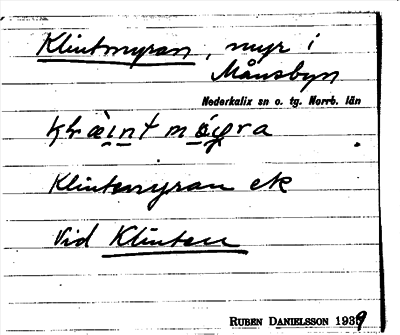 Klintmyran, myr i
Månsbyn
Nederkalix sn o. tg. Norrb. län
Klintmyran ek
Vid Klinten
RUBEN DANIELSSON 1939